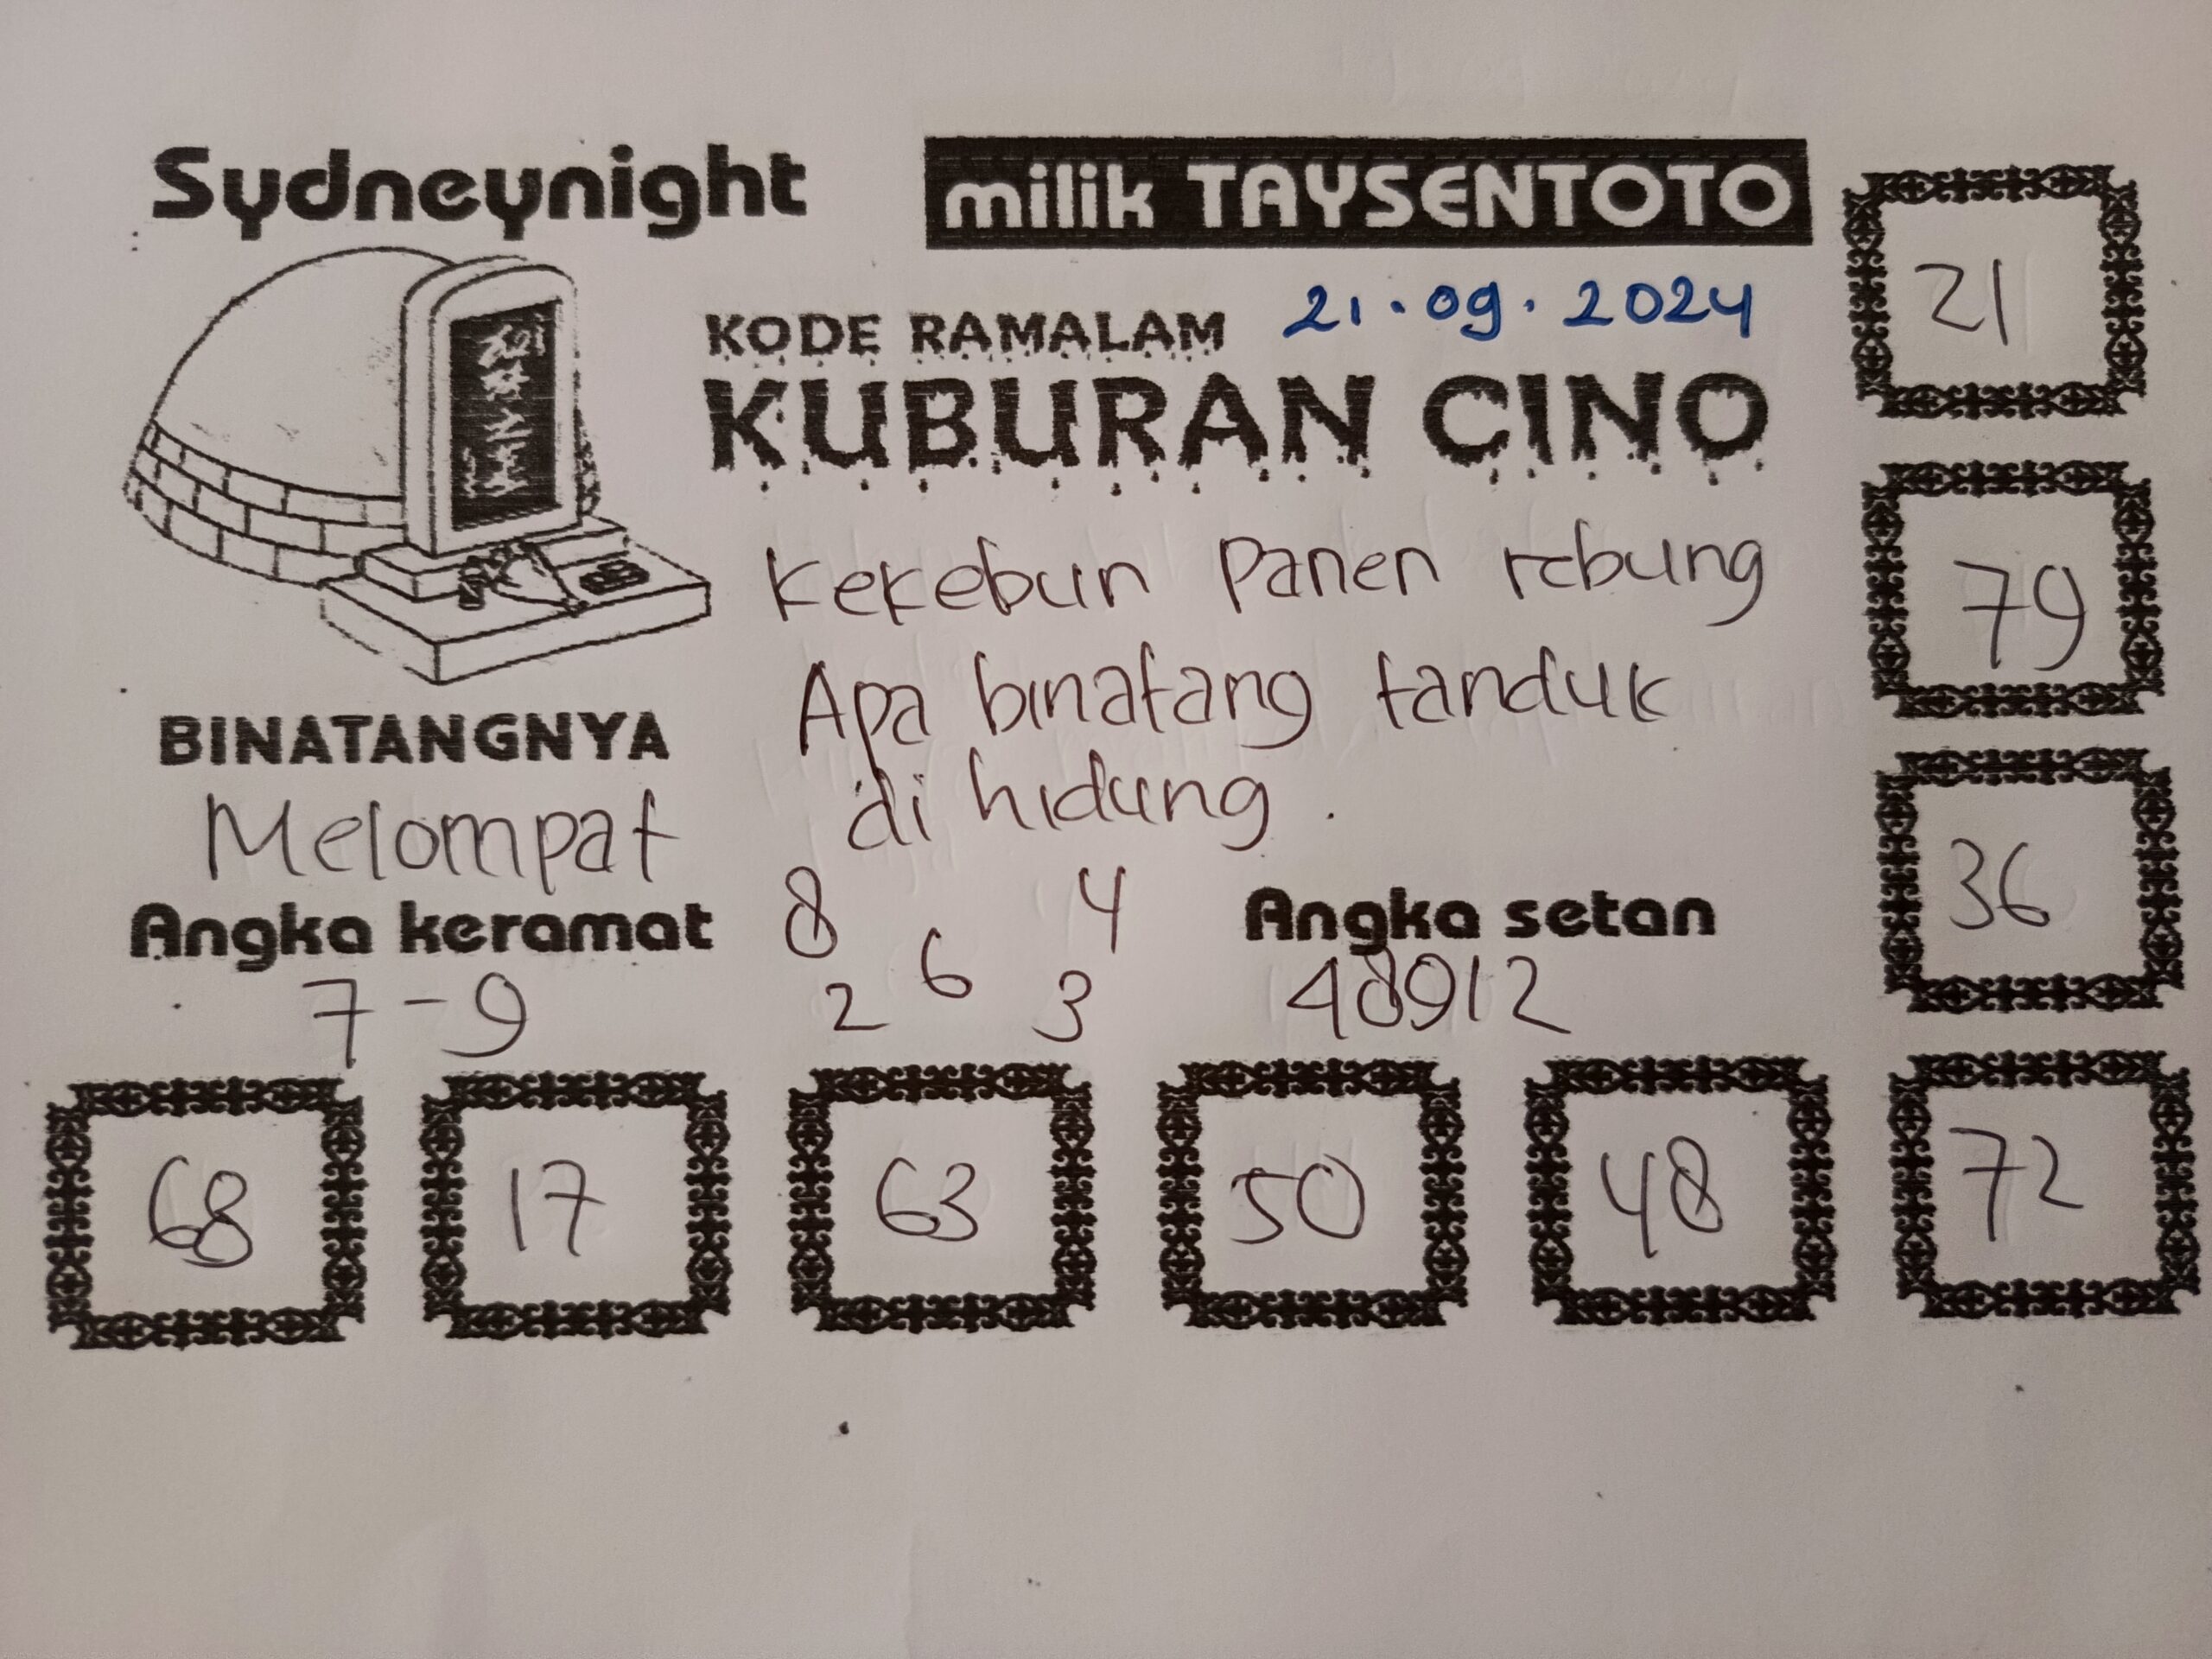 Sydneynight
milik TAYSENTOTO
21
KODE RAMALAM 21.09.2024
KUBURAN CINO
79
Kekebun Panen rebung
Apa binatang tanduk
di hidung.
BINATANGNYA
Melompat
36
Angka keramat
7-9
8 4
6
2 3
Angka setan
48912
68 17 63 50 48 72